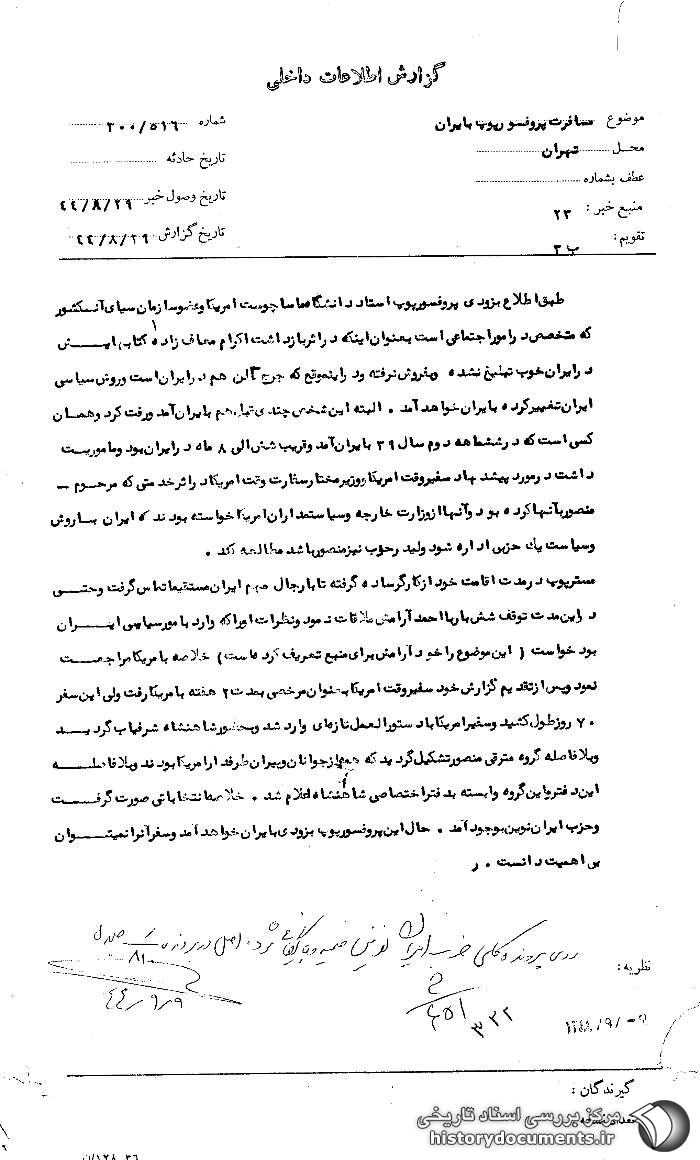 گزارش اطلاعات داخلی
موضوع مسافرت پروفسور پوپ بایران
شماره ۳۰۰/۵۱۶
محل تهران
تاریخ حادثه
عطف بشماره
تاریخ وصول خبر ۴۴/۸/۲۹
منبع خبر : ۲۳
تاریخ گزارش ۴۴/۸/۲۹
تقویم : ب ۳
طبق اطلاع بزودی پروفسورپوپ استاد دانشگاه ماساچوست امریکا وعضوسازمان سیای آنکشور
که متخصص درامور اجتماعی است بعنوان اینکه در اثر بازداشت اکرام معاف زاده کتابهایش
در ایران خوب تبلیغ نشده وبفروش نرفته ود راینموقع که جرج آلن هم د رایران است وروش سیاسی
ایران تغییرکرده بایران خواهد آمد . البته این شخص چندی قبل هم بایران آمد ورفت کرد وهمان
کسی است که در ششماهه دوم سال ۳۹ بایران آمد وقریب شش الی ۸ ماه د رایران بود وماموریت
داشت درمورد پیشنهاد سفیروقت امریکا ووزیرمختارسفارت وقت امریکا د راثرخدمتی که مرحوم -
منصوربآنها کرده بود وآنها ازوزارت خارجه وسیاستمداران امریکا خواسته بودند که ایران باروش
وسیاست یك حزبی اداره شود ولید رحزب نیزمنصورباشد مطالعه کند .
مسترپوپ درمدت اقامت خود ازکارگر ساده گرفته تا بارجال مهم ایران مستقیماتماس گرفت وحتی
د راین مدت توقف شش باربا احمد آرامش ملاقات نمود ونظرات اوراکه وارد بامورسیاسی ایران
بود خواست ( این موضوع را خود آرامش برای منبع تعریف کرده است ) خلاصه بامریکا مراجعت
نمود وپس ازتقدیم گزارش خود سفیروقت امریکا بعنوان مرخصی بمدت ۲ هفته بامریکا رفت ولی این سفر
۷۰ روزطول کشید وسفیرامریکا باد ستورالعمل تازه ای وارد شد وبحضورشاهنشاه شرفیاب گردید
وبلافاصله گروه مترقی منصورتشکیل گردید که همه ازجوانان وپیران طرفدارامریکا بودند وبلافاصله
این دفتر واین گروه وابسته بدفتراختصاصی شاهنشاه اعلام شد . خلاصه انتخاباتی صورت گرفت
وحزب ایران نوین بوجود آمد . حال این پروفسورپوپ بزودی بایران خواهد آمد وسفرآنرا نمیتوان
بی اهمیت دانست . ر
روی پرونده کلی حزب ایران نوین ضمیمه و بایگانی شود. اصل در پرونده
نظریه :
۸۱۰
۴۴/۹/۹
۳۳۲
گیرندگان :
تعداد نسخه
مرکز بررسی اسناد تاریخی
historydocuments.ir